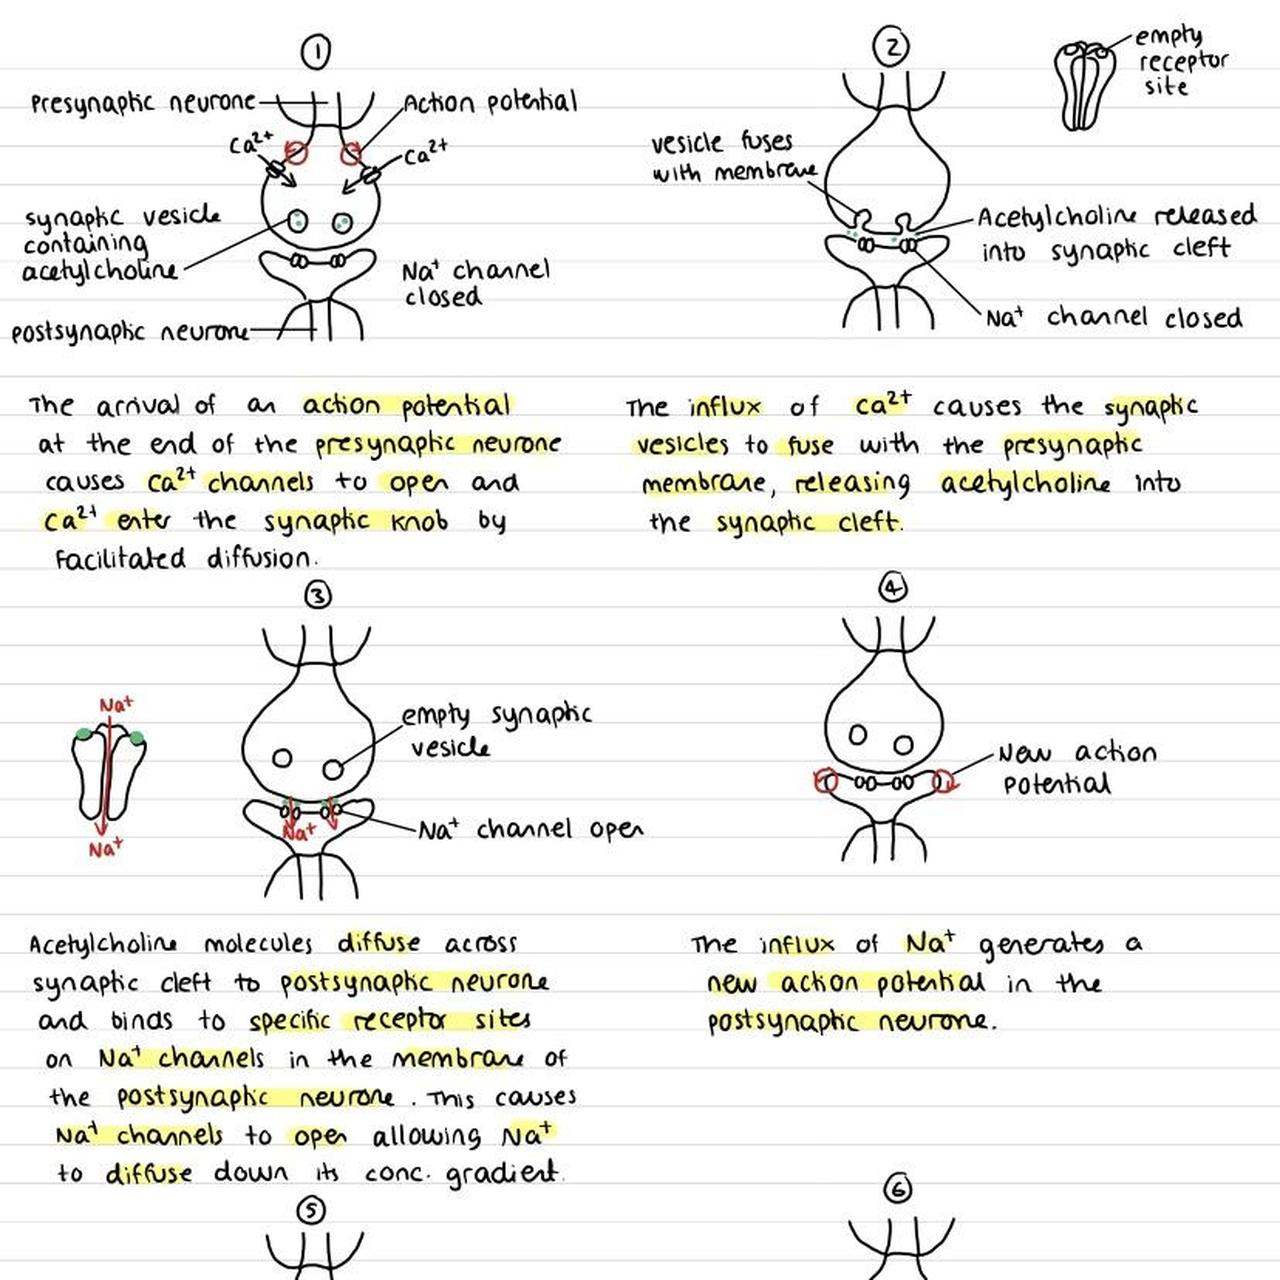 ①
Presynaptic neurone
Action potential
Ca²⁺
Ca²⁺
synaptic vesicle
containing
acetylcholine
Na⁺ channel
closed
postsynaptic neurone
②
empty
receptor
site
vesicle fuses
with membrane
Acetylcholine released
into synaptic cleft
Na⁺ channel closed
The arrival of an action potential
at the end of the presynaptic neurone
causes Ca²⁺ channels to open and
Ca²⁺ enter the synaptic knob by
facilitated diffusion.
The influx of Ca²⁺ causes the synaptic
vesicles to fuse with the presynaptic
membrane, releasing acetylcholine into
the synaptic cleft.
③
Na⁺
Na⁺
empty synaptic
vesicle
Na⁺
Na⁺ channel open
④
New action
potential
Acetylcholine molecules diffuse across
synaptic cleft to postsynaptic neurone
and binds to specific receptor sites
on Na⁺ channels in the membrane of
the postsynaptic neurone. This causes
Na⁺ channels to open allowing Na⁺
to diffuse down its conc. gradient.
The influx of Na⁺ generates a
new action potential in the
postsynaptic neurone.
⑤
⑥